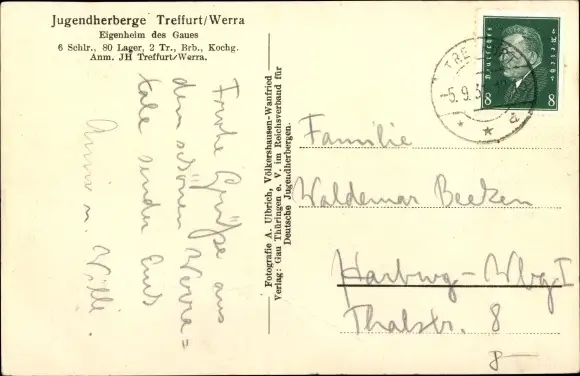 Jugendherberge Treffurt/Werra
Eigenheim des Gaues
6 Schlr., 80 Lager, 2 Tr., Brb., Kochg.
Anm. JH Treffurt/Werra.
Frohe Grüße aus
dem schönen Werra=
tale sendet Euch
Anni u. Willi.
Fotografie A. Ulbrich, Völkershausen-Wanfried
Verlag: Gau Thüringen e. V. im Reichsverband für
Deutsche Jugendherbergen.
Deutsches Reich
8 8
TREFFURT
-5.9.3
Familie
Waldemar Becken
Harburg-Wbg I
Thalstr. 8
8—